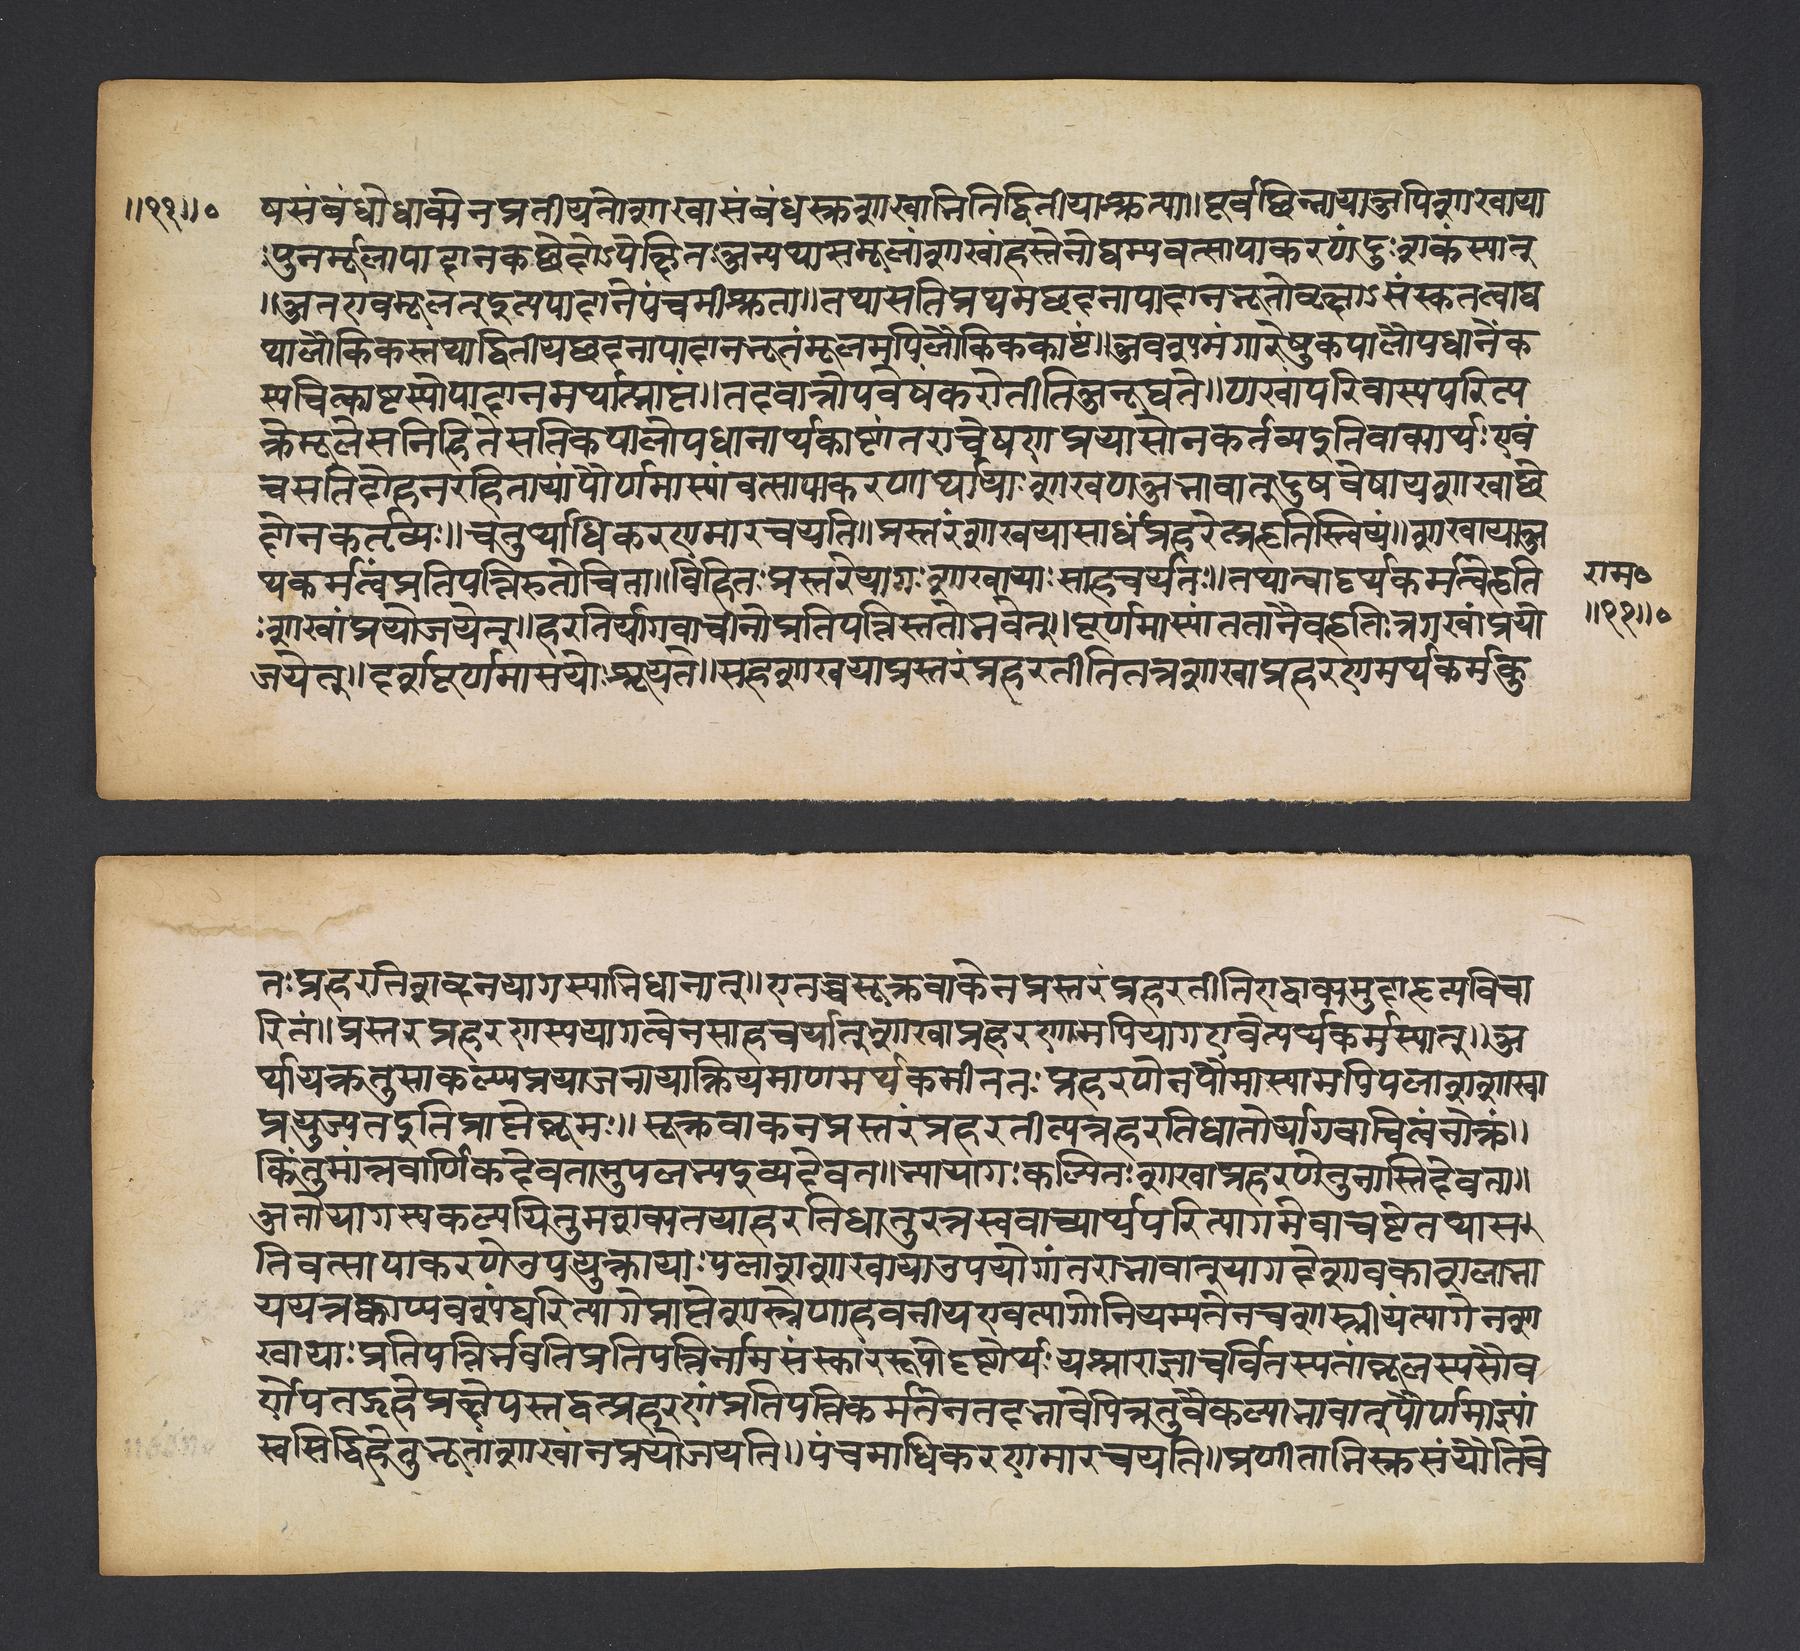 ॥११॥०
षसंबंधोधाक्येनप्रतीयतेशाखासंबंधस्क्तशाखानितिद्वितीयाश्रुत्या॥पूर्वछिन्नायाअपिशाखाया
ःपुनर्मूलापादानकछेदोऽपेक्षितःअन्यथासमूलांशाखांहस्तेनोद्यम्यवत्सापाकरणंदुःशकंस्यात्
॥अतएवमूलतद्रुत्यपादानेपंचमीश्रुता॥तथासतिप्रथमछेदनापादानभूतोवृक्षोऽसंस्कतत्वाद्य
थालौकिकस्तथाद्वितीयछेदनापादानभूतंमूलमपिलौकिककाष्टं॥अवश्यमंगारेषुकपालोपधानेक
स्यचित्काष्टस्योपादानमर्थात्प्राप्तं॥तदेवान्नोपवेषंकरोतीतिअनूद्यते॥शाखांपरिवास्यपरित्य
क्तेमूलेसनिहितेसतिकपालोपधानार्थकाष्टांतरान्वेषणप्रयासोनकर्तव्यइतिवाक्यार्थःएवं
चसतिदोहनरहितायांपौर्णमास्यांवत्सापाकरणार्थायाःशाखायाअभावात्उपवेषायशाखाछे
दोनकर्तव्यः॥चतुर्थाधिकरणमारचयति॥प्रस्तरंशाखयासार्धंप्रहरेत्प्रहृतिस्त्वियं॥शाखायाअ
र्थकर्मत्वंप्रतिपत्तिरुतोचिता॥विहितःप्रस्तरेयागःशाखायाःसाहचर्यतः॥तथात्वादर्थकर्मत्वेहृति
ःशाखांप्रयोजयेत्॥हरतिर्यागवाचीनोप्रतिपत्तिस्ततोभवेत्॥पूर्णमास्यांततोनैवहृतिःशाखांप्रयो
जयेत्॥दर्शपूर्णमासयोःश्रूयते॥सहशाखयाप्रस्तरंप्रहरतीतितत्रशाखाप्रहरणमर्थकर्मकु
राम०
॥११॥०
तःप्रहरतिशब्देनयागस्याभिधानात्॥एतच्चसूक्तवाकेनप्रस्तरंप्रहरतीतिएद्वाक्यमुदाहृत्यविचा
रितं॥प्रस्तरप्रहरणस्ययागत्वेनसाहचर्यात्शाखाप्रहरणमपियागएवेत्यर्थकर्मस्यात्॥अ
र्थायक्रतुसाकल्यप्रयाजनायाक्रियमाणमर्थकर्मातितःप्रहरणेनपौर्मास्यामपिपलाशशाखा
प्रयुज्यतइतिप्राप्तेब्रूमः॥सूक्तवाकेनप्रस्तरंप्रहरतीत्यत्रहरतिधातोर्यागवाचित्वंनोक्तं॥
किंतुमांत्रवार्णिकदेवतामुपलभ्यद्रव्यदेवत॥भ्यायागःकल्पितःशाखाप्रहरणेतुनास्तिदेवता॥
अतोयागस्यकल्पयितुमशक्यतयाहरतिधातुरत्रस्ववाच्यार्थपरित्यागमेवाचष्टेतथास
तिवत्सापाकरणेउपयुक्तायाःपलाशशाखायाउपयोगांतराभावात्यागदेशावकाशलाभा
ययत्रक्वाप्यवश्यंपरित्यागेप्राप्तेशास्त्रेणाहवनीयएवत्यागोनियम्यतेनचशास्त्रीयंत्यागेनशा
खायाःप्रतिपत्तिर्भवतिप्रतिपत्तिर्नामसंस्काररूपोदृष्टोर्थःयथाराज्ञाचर्वितस्यतांबूलस्यसौव
र्णेपतद्गृहेप्रक्षेपस्तद्वत्प्रहरणंप्रतिपत्तिकर्मतेनतदभावेपिक्रतुवैकल्याभावात्पौर्णमास्यां
स्वसिद्धिहेतुभूतांशाखांनप्रयोजयति॥पंचमाधिकरणमारचयति॥प्रणीताभिस्क्तसंयौतिवे